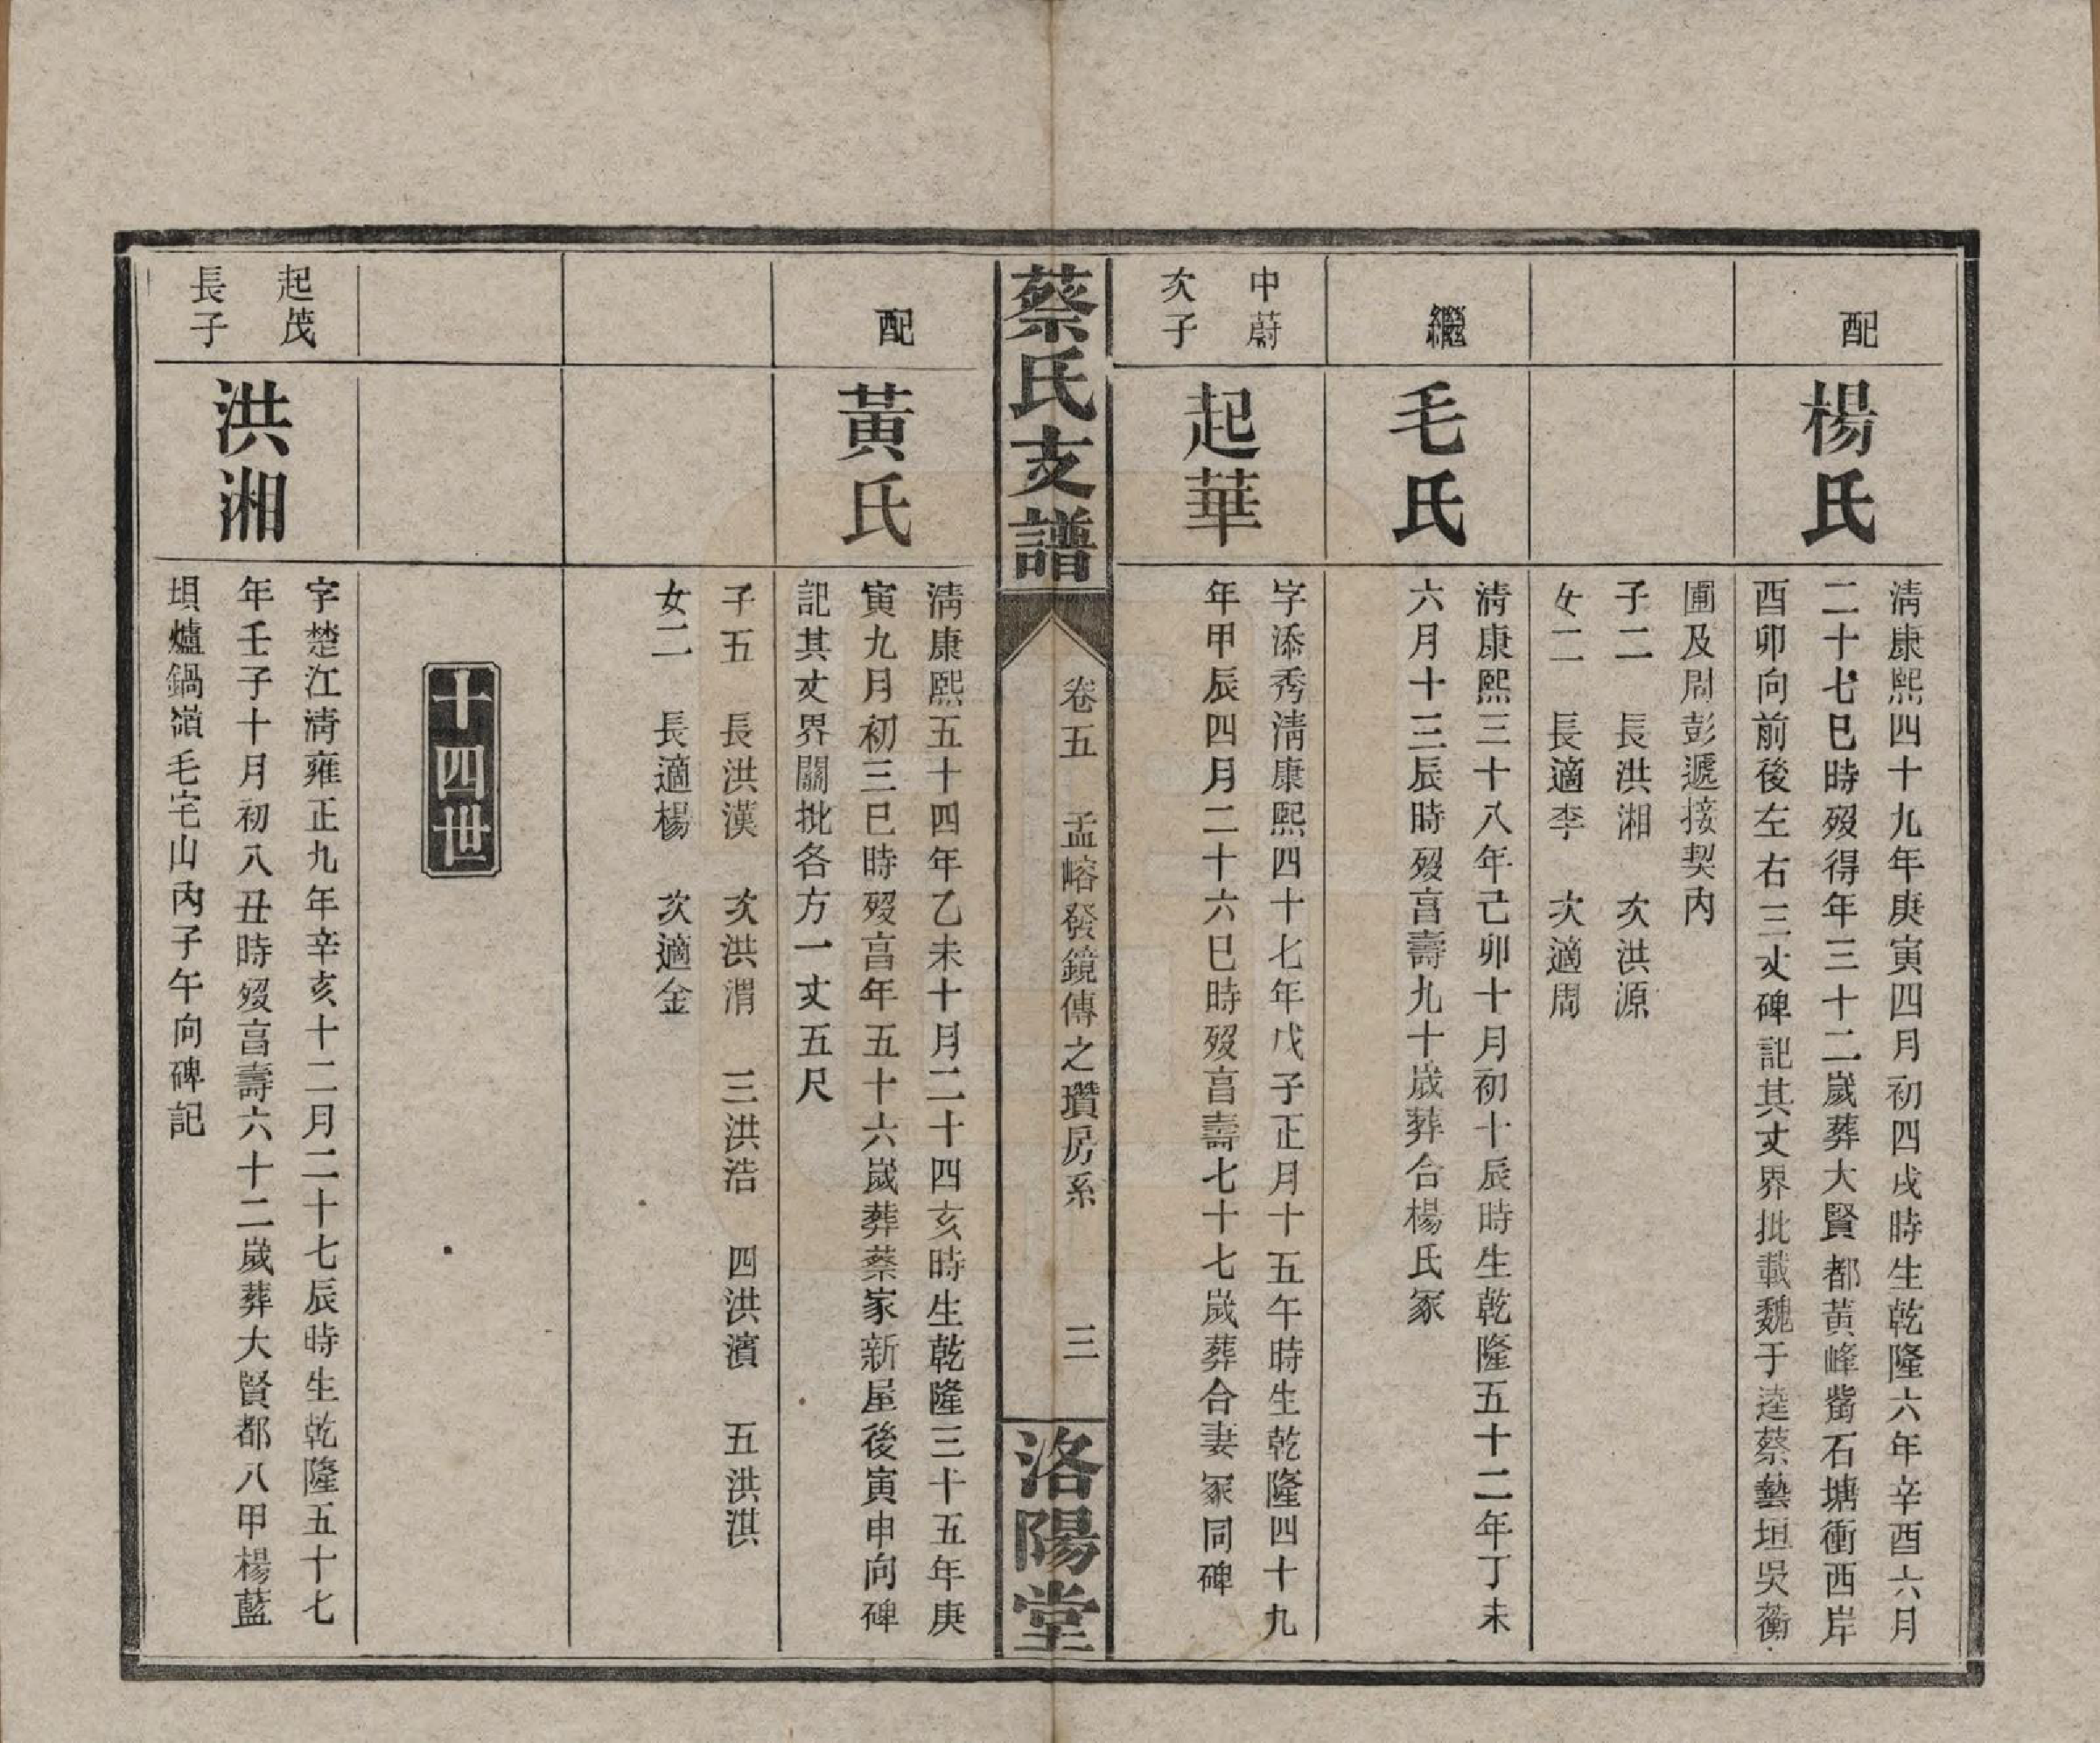 配
楊氏
清康熙四十九年庚寅四月初四戌時生乾隆六年辛酉六月
二十七巳時歿得年三十二歲葬大賢都黃峰觜石塘衝西岸
酉卯向前後左右三丈碑記其丈界批載魏于逵蔡藝垣吳蘅
圃及周彭遞接契內
子二 長洪湘 次洪源
女二 長適李 次適周
繼
毛氏
清康熙三十八年己卯十月初十辰時生乾隆五十二年丁未
六月十三辰時歿富壽九十歲葬合楊氏冢
中蔚
次子
起華
字添秀清康熙四十七年戊子正月十五午時生乾隆四十九
年甲辰四月二十六巳時歿富壽七十七歲葬合妻冢同碑
蔡氏支譜
卷五 孟嵱發鏡傳之瓚房系 三
洛陽堂
配
黃氏
清康熙五十四年乙未十月二十四亥時生乾隆三十五年庚
寅九月初三巳時歿富年五十六歲葬蔡家新屋後寅申向碑
記其丈界關批各方一丈五尺
子五 長洪漢 次洪渭 三洪浩 四洪濱 五洪淇
女二 長適楊 次適金
十四世
起茂
長子
洪湘
字楚江清雍正九年辛亥十二月二十七辰時生乾隆五十七
年壬子十月初八丑時歿富壽六十二歲葬大賢都八甲楊藍
埧爐鍋嶺毛宅山內子午向碑記